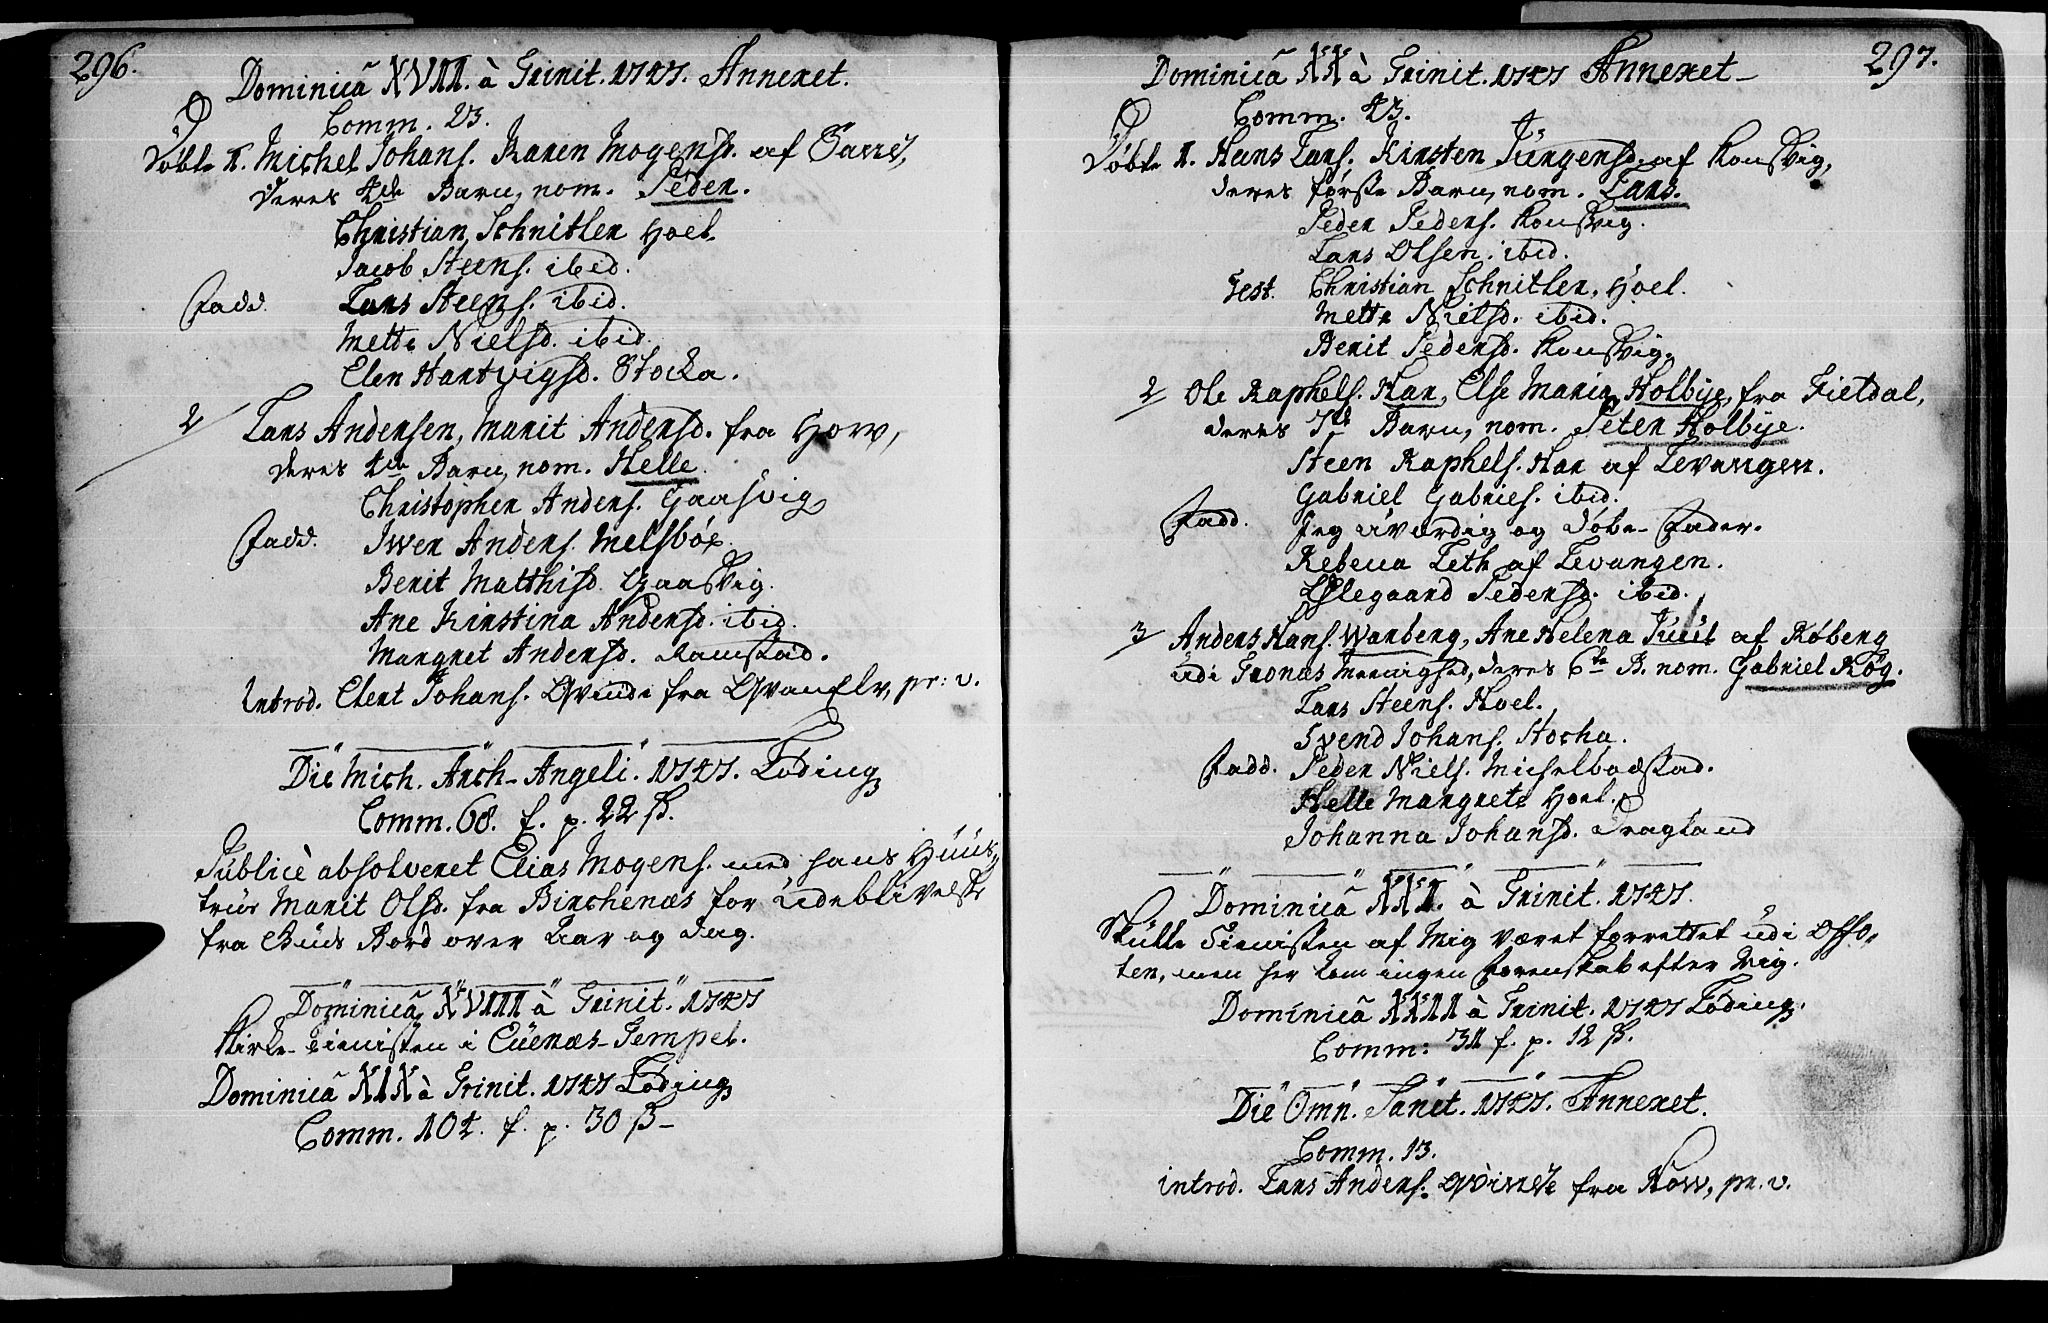 296.
Dominicâ XVII. à Trinit. 1747. Annexet.
Comm. 23.
Døbte 1. Michel Johans. Karen Mogensd. af
deres 4de Barn, nom. Peder.
Christian Schnitler Hoel.
Jacob Steens. ibid.
Fadd. Lars Steens. ibid.
Mette Nielsd. ibid.
Elen Hartvigsd. Stocka.
2 Lars Andersen, Marit Andersd. fra How,
deres 1ste Barn, nom. Helle.
Christopher Anders. Gaasvig
Fadd. Iwer Anders. Melsböe.
Berit Matthisd. Gaasvig.
Ane Kirstina Andersd. ibid.
Margret Andersd. Ramstad.
Introd. Elert Johans. Qvinde fra Qvanelv, pr: v.
Die Mich. Arch-Angeli. 1747. Löding
Comm. 68. f. p. 22 ß.
Publicè absolveret Elias Mogens. med hans Hüus-
trüe Marit Olsd. fra Birchenæs for Udeblivelse
fra Guds Bord over Aar og Dag.
Dominicâ XVIII à Trinit. 1747
Kirke-Tienisten i Euenæs-Tempel.
Dominicâ XIX à Trinit. 1747 Löding
Comm. 104. f. p. 30 ß-
297.
Dominicâ XX à Trinit. 1747 Annexet-
Comm. 43.
Døbte 1. Hans Lars. Kirsten Jürgensd. af Kongsvig,
deres første Barn, nom. Lars.
Peder Peders. Kongsvig.
Lars Olsen. ibid.
Test. Christian Schnitler, Hoel.
Mette Nielsd. ibid.
Berit Pedersd. Kongsvig.
2 Ole Raphels. Har, Else Maria Holbye, fra Fieldal,
deres 7de Barn, nom. Peter Holbye.
Steen Raphels. Har af Levangen.
Gabriel Gabriels. ibid.
Fadd. Jeg uværdig og Døbe-Fader.
Rebecca Leth af Levangen.
Ølegaard Pedersd. ibid.
3 Anders Hans. Warberg, Ane Helena Juul af Røberg
udi Tronæs Menighed, deres 6te B. nom. Gabriel Røg.
Lars Steens. Hoel.
Svend Johans. Stocka.
Fadd. Peder Niels. Michelbostad.
Helle Margrete Hoel.
Johanna Johansd. Dragland
Dominicâ XXI. à Trinit. 1747.
Skulle Tienisten af Mig været forrettet udi Offo-
ten, men her kom ingen Forenskab efter Mig.
Dominicâ XXII à Trinit. 1747 Löding.
Comm: 31 f. p. 12 ß.
Die Omn. Sanct. 1747. Annexet.
Comm. 13.
introd. Lars Anders. Qvinde fra How, pr. v.